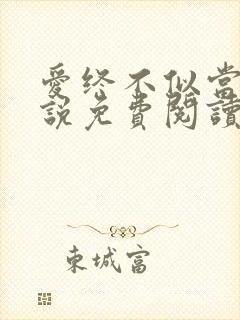 愛终不似當
說免費閱讀
東城富